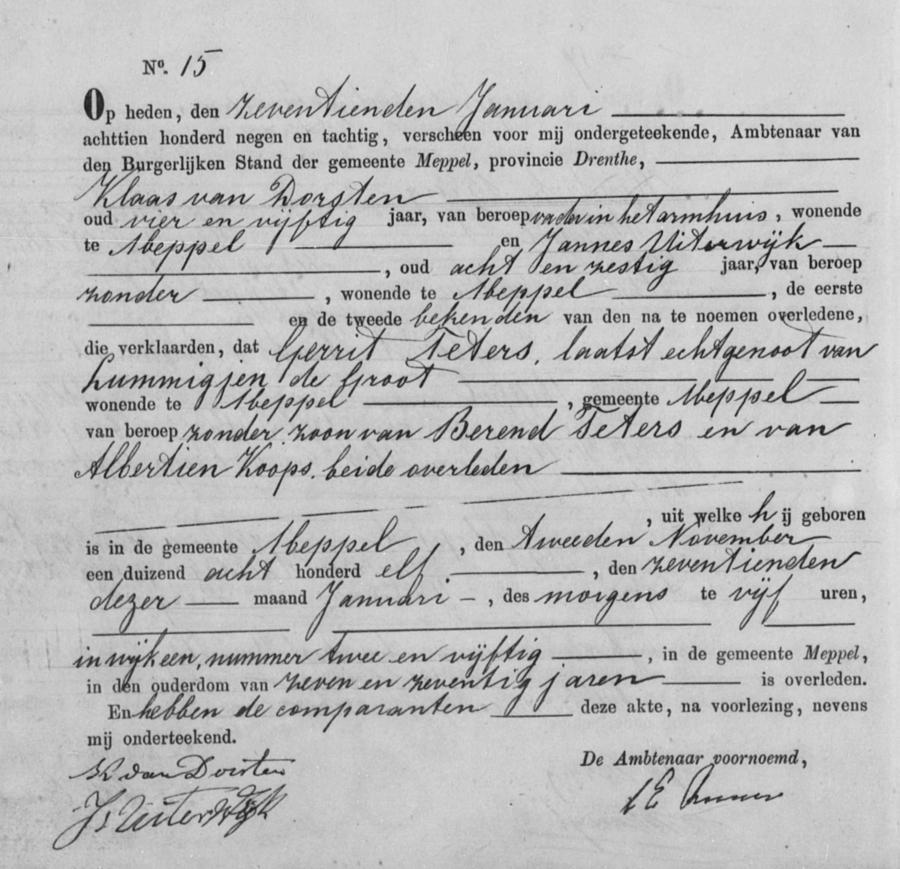 No. 15
Op heden, den zeventienden Januari
achttien honderd negen en tachtig, verscheen voor mij ondergeteekende, Ambtenaar van
den Burgerlijken Stand der gemeente Meppel, provincie Drenthe,
Klaas van Dorsten
oud vier en vijftig jaar, van beroep vader in het armhuis, wonende
te Meppel en Jannes Uiterwijk
, oud acht en zestig jaar, van beroep
zonder , wonende te Meppel , de eerste
en de tweede bekenden van den na te noemen overledene,
die verklaarden, dat Gerrit Teters, laatst echtgenoot van
Lummigjen de Groot
wonende te Meppel , gemeente Meppel
van beroep zonder, zoon van Berend Teters en van
Albertien Koops, beide overleden
, uit welke hij geboren
is in de gemeente Meppel , den tweeden November
een duizend acht honderd elf , den zeventienden
dezer maand Januari , des morgens te vijf uren,
in wijk een, nummer twee en vijftig , in de gemeente Meppel,
in den ouderdom van zeven en zeventig jaren is overleden.
En hebben de comparanten deze akte, na voorlezing, nevens
mij onderteekend.
De Ambtenaar voornoemd,
K van Dorsten
Js Uiterwijk